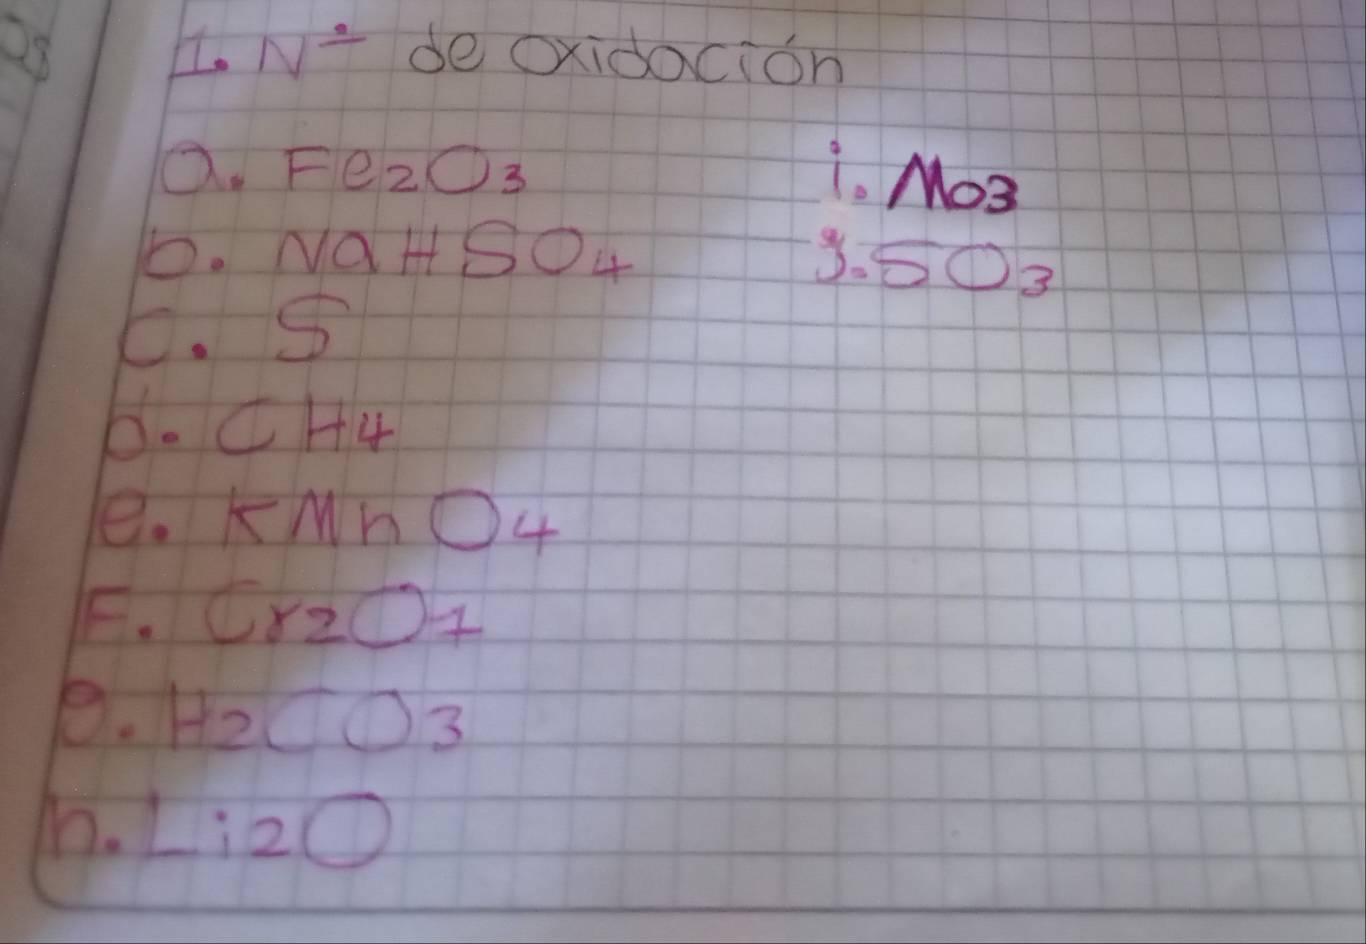 1. Nº de Oxidación
a. Fe2O3
b. NaHSO4
c. S
d. CH4
e. KMnO4
F. Cr2O7
g. H2CO3
h. Li2O
i. Mo3
j. SO3